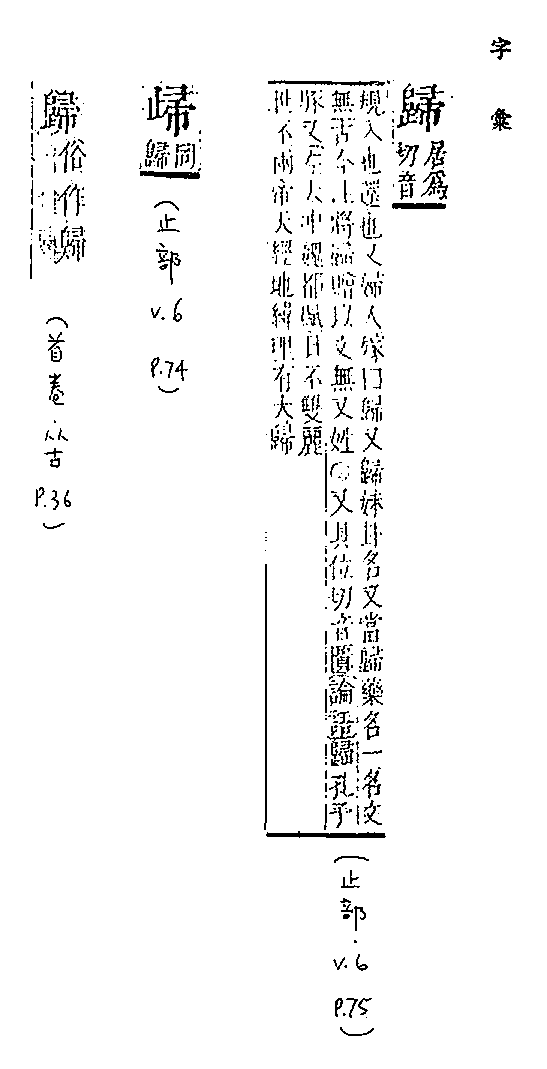 字彙
歸 居爲切音
規入也還也又婦人嫁曰歸又歸妹卦名又當歸藥名一名文
無古今注將歸贈以文無又姓〇又具位切音匱論語歸孔子
豚又
世不兩帝天經地緯理有大歸
(止部 v.6 P.75)
歸 同歸
(止部 v.6 P.74)
歸 俗作歸
(首卷 从古 P.36)